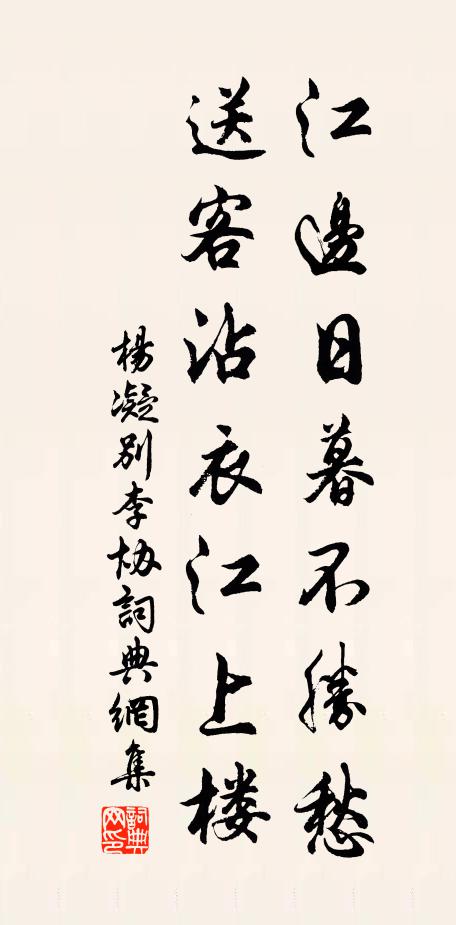 江邊日暮不勝愁
送客沾衣江上楼
楊凝別李協詞典網集
詞典网印